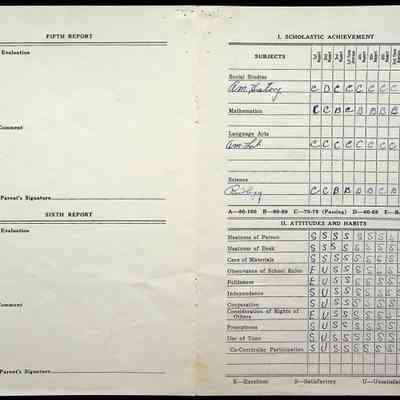 FIFTH REPORT
Evaluation
Comment
Parent's Signature
SIXTH REPORT
Evaluation
Comment
Parent's Signature
I. SCHOLASTIC ACHIEVEMENT
SUBJECTS
Social Studies
Am. History C D C C C C C C
Mathematics C C B C B B B B
Language Arts
Am. Lit C C C C C C C C
Science
Biology C C B B B B B B
A—90-100 B—80-89 C—70-79 (Passing) D—60-69
II. ATTITUDES AND HABITS
Neatness of Person S S S S S S S S
Neatness of Desk S S S S S S S S
Care of Materials S S S S S S S S
Observance of School Rules E U S S S S S S
Politeness E U S S S S S S
Independence S U S S S S S S
Cooperation S U S S S S S S
Consideration of Rights of
Others E U S S S S S S
Promptness S U S S S S S S
Use of Time S U S S S S S S
Co-Curricular Participation S U S S S S S S
E—Excellent S—Satisfactory U—Unsatisfa